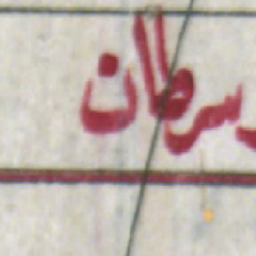 سرطان